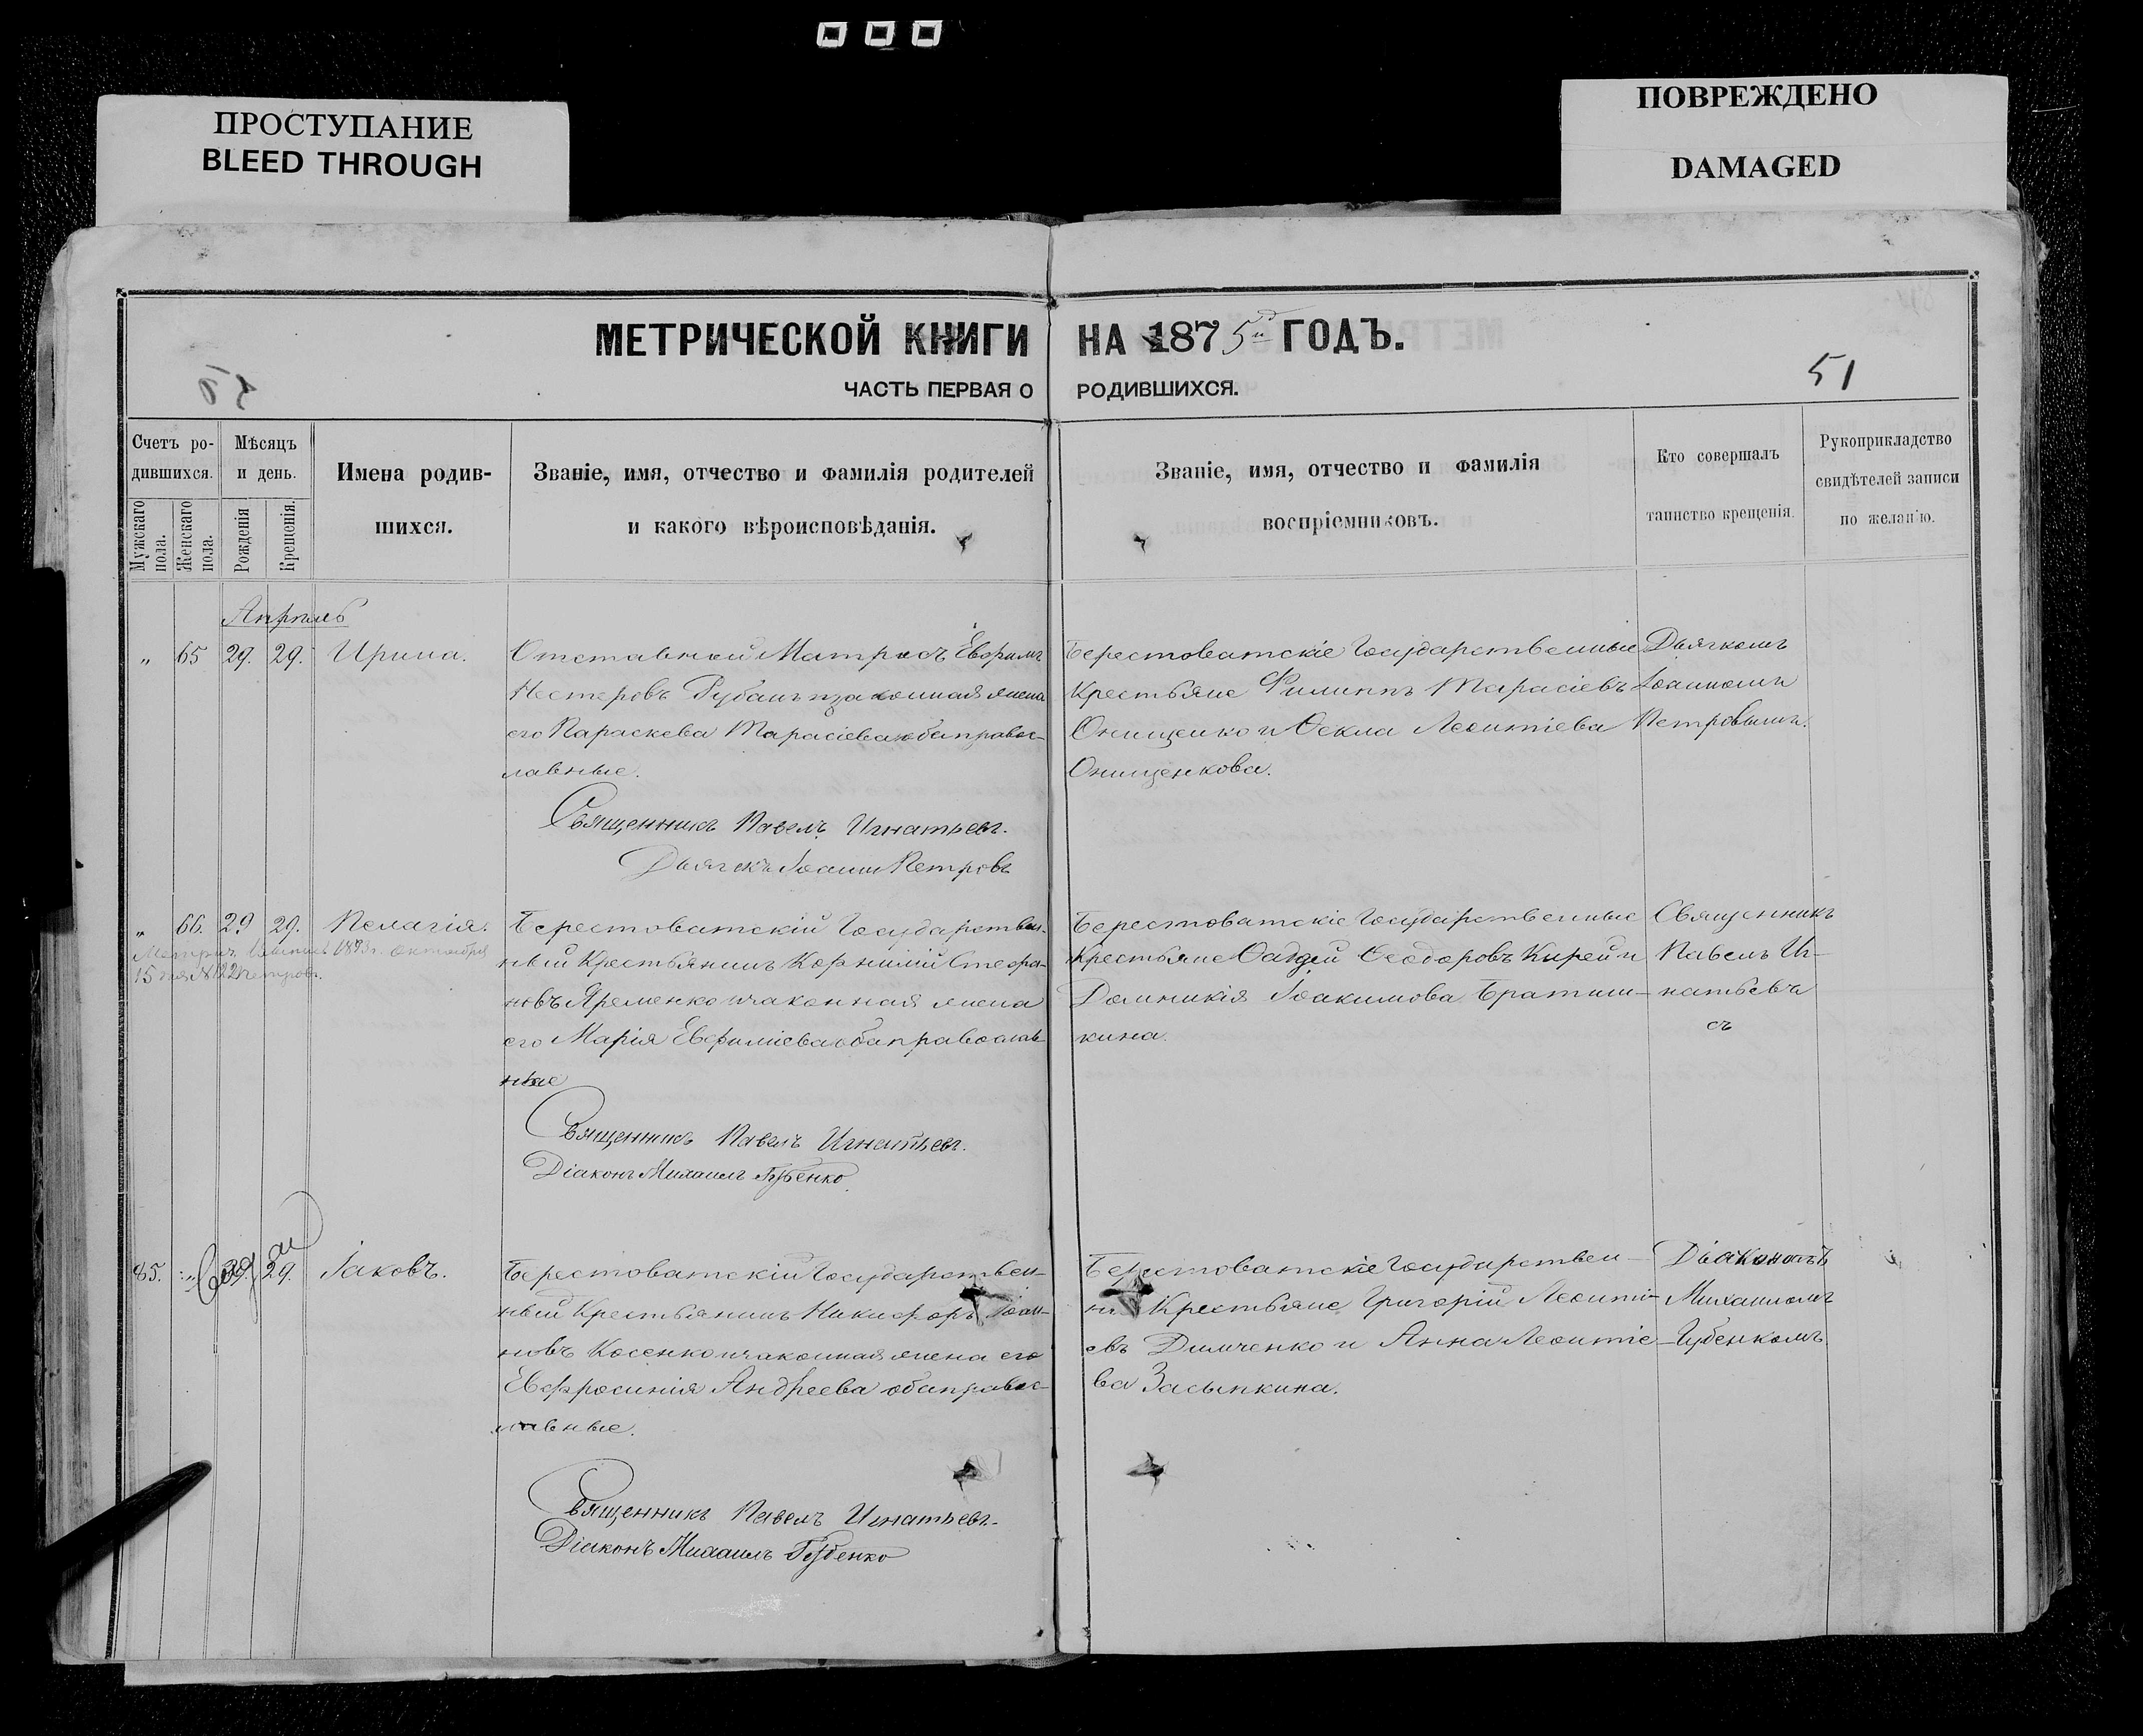 ПРОСТУПАНИЕ
BLEED THROUGH
ПОВРЕЖДЕНО
DAMAGED
МЕТРИЧЕСКОЙ КНИГИ НА 1875й ГОДЪ.
51
ЧАСТЬ ПЕРВАЯ О РОДИВШИХСЯ.
Счетъ ро-
дившихся.
Мужскаго пола.
Женскаго пола.
Мѣсяцъ
и день.
Рожденія
Крещенія.
Имена родив-
шихся.
Званіе, имя, отчество и фамилія родителей
и какого вѣроисповѣданія.
Званіе, имя, отчество и фамилія
воспріемниковъ.
Кто совершалъ
таинство крещенія.
Рукоприкладство
свидѣтелей записи
по желанію.
Апрѣль
„ 65 29. 29. Ирина.
Отставной Матросъ Ефимъ
Нестеровъ Рубанъ и законная жена
его Параскева Тарасіева оба правос-
лавные.
Священникъ Павелъ Игнатьевъ.
Дьячекъ Іоаннъ Петровъ
Берестоватскіе Государственные
Крестьяне Филиппъ Тарасіевъ
Онищенко и Ѳекла Леонтіева
Онищенкова.
Дьячкомъ
Іоанномъ
Петровымъ.
„ 66. 29 29. Пелагія.
15 дня № 122 Петровъ.
Берестоватскій Государствен-
ный Крестьянинъ Корнилій Стефа-
новъ Яременко и законная жена
его Марія Ефиміева оба православ-
ные
Священникъ Павелъ Игнатьевъ.
Діаконъ Михаилъ Губенко.
Берестоватскіе Государственные
Крестьяне Ѳаддей Ѳеодоровъ Кирей и
Домникія Іоакимова Братиш-
кина.
Священникъ
Павелъ Иг-
натьевъ
съ
85. „ 29. 29. Іаковъ.
Берестоватскій Государствен-
ный Крестьянинъ Никифоръ Іоан-
новъ Косенко и законная жена его
Евфросинія Андреева оба правос-
лавные.
Священникъ Павелъ Игнатьевъ.
Діаконъ Михаилъ Губенко
Берестоватскіе Государствен-
Крестьяне Григорій Леонті-
евъ Димченко и Анна Леонтіе-
ва Засыпкина.
Діакономъ
Михаиломъ
Губенкомъ.